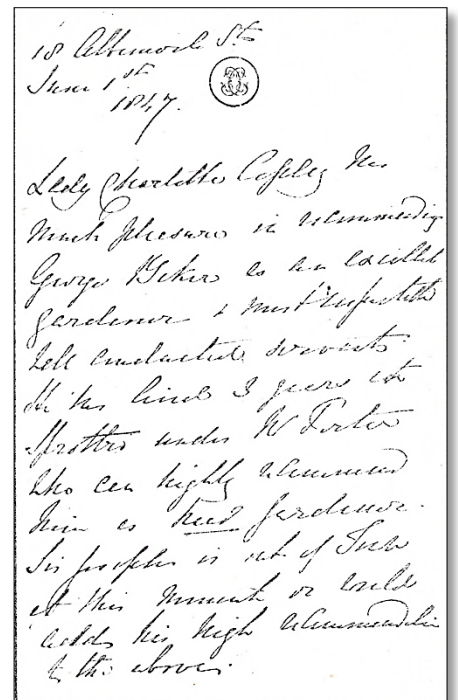 18 Albemarle St.
June 1st
1847.
Lady Charlotte Copley has
much pleasure in recommending
George Baker as an excellent
gardener & most respectable
well conducted servant.
He has lived 3 years at
Sprotbro under Mr Foster
who can highly recommend
him as head gardener.
Sir Joseph is out of Town
at this moment or would
add his high recommendation
to the above.